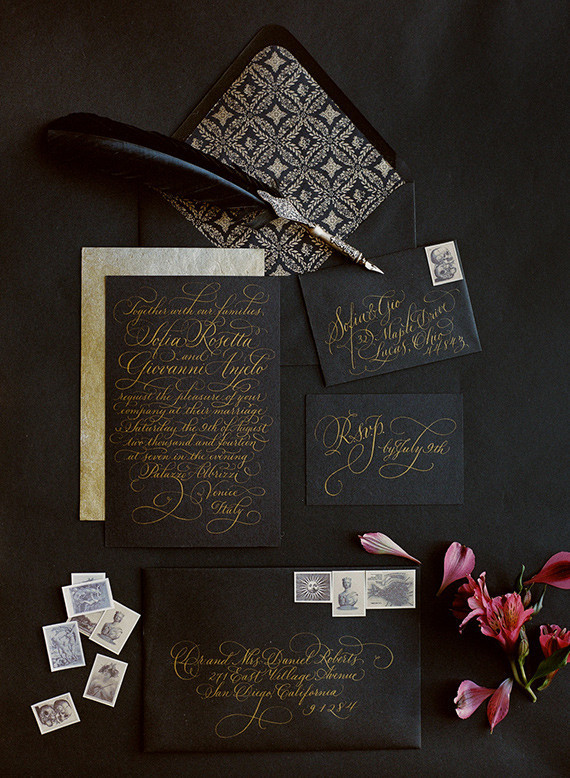 Together with our families,
Sofia Rosetta
and
Giovanni Anjelo
request the pleasure of your
company at their marriage
Saturday the 9th of August
two thousand and fourteen
at seven in the evening
Palazzo Albrizzi
Venice
Italy
Sofia & Gio
32 Maple Drive
Lucas, Ohio
44843
RSVP
by July 9th
Dr and Mrs Daniel Roberts
271 East Village Avenue
San Diego, California
91284